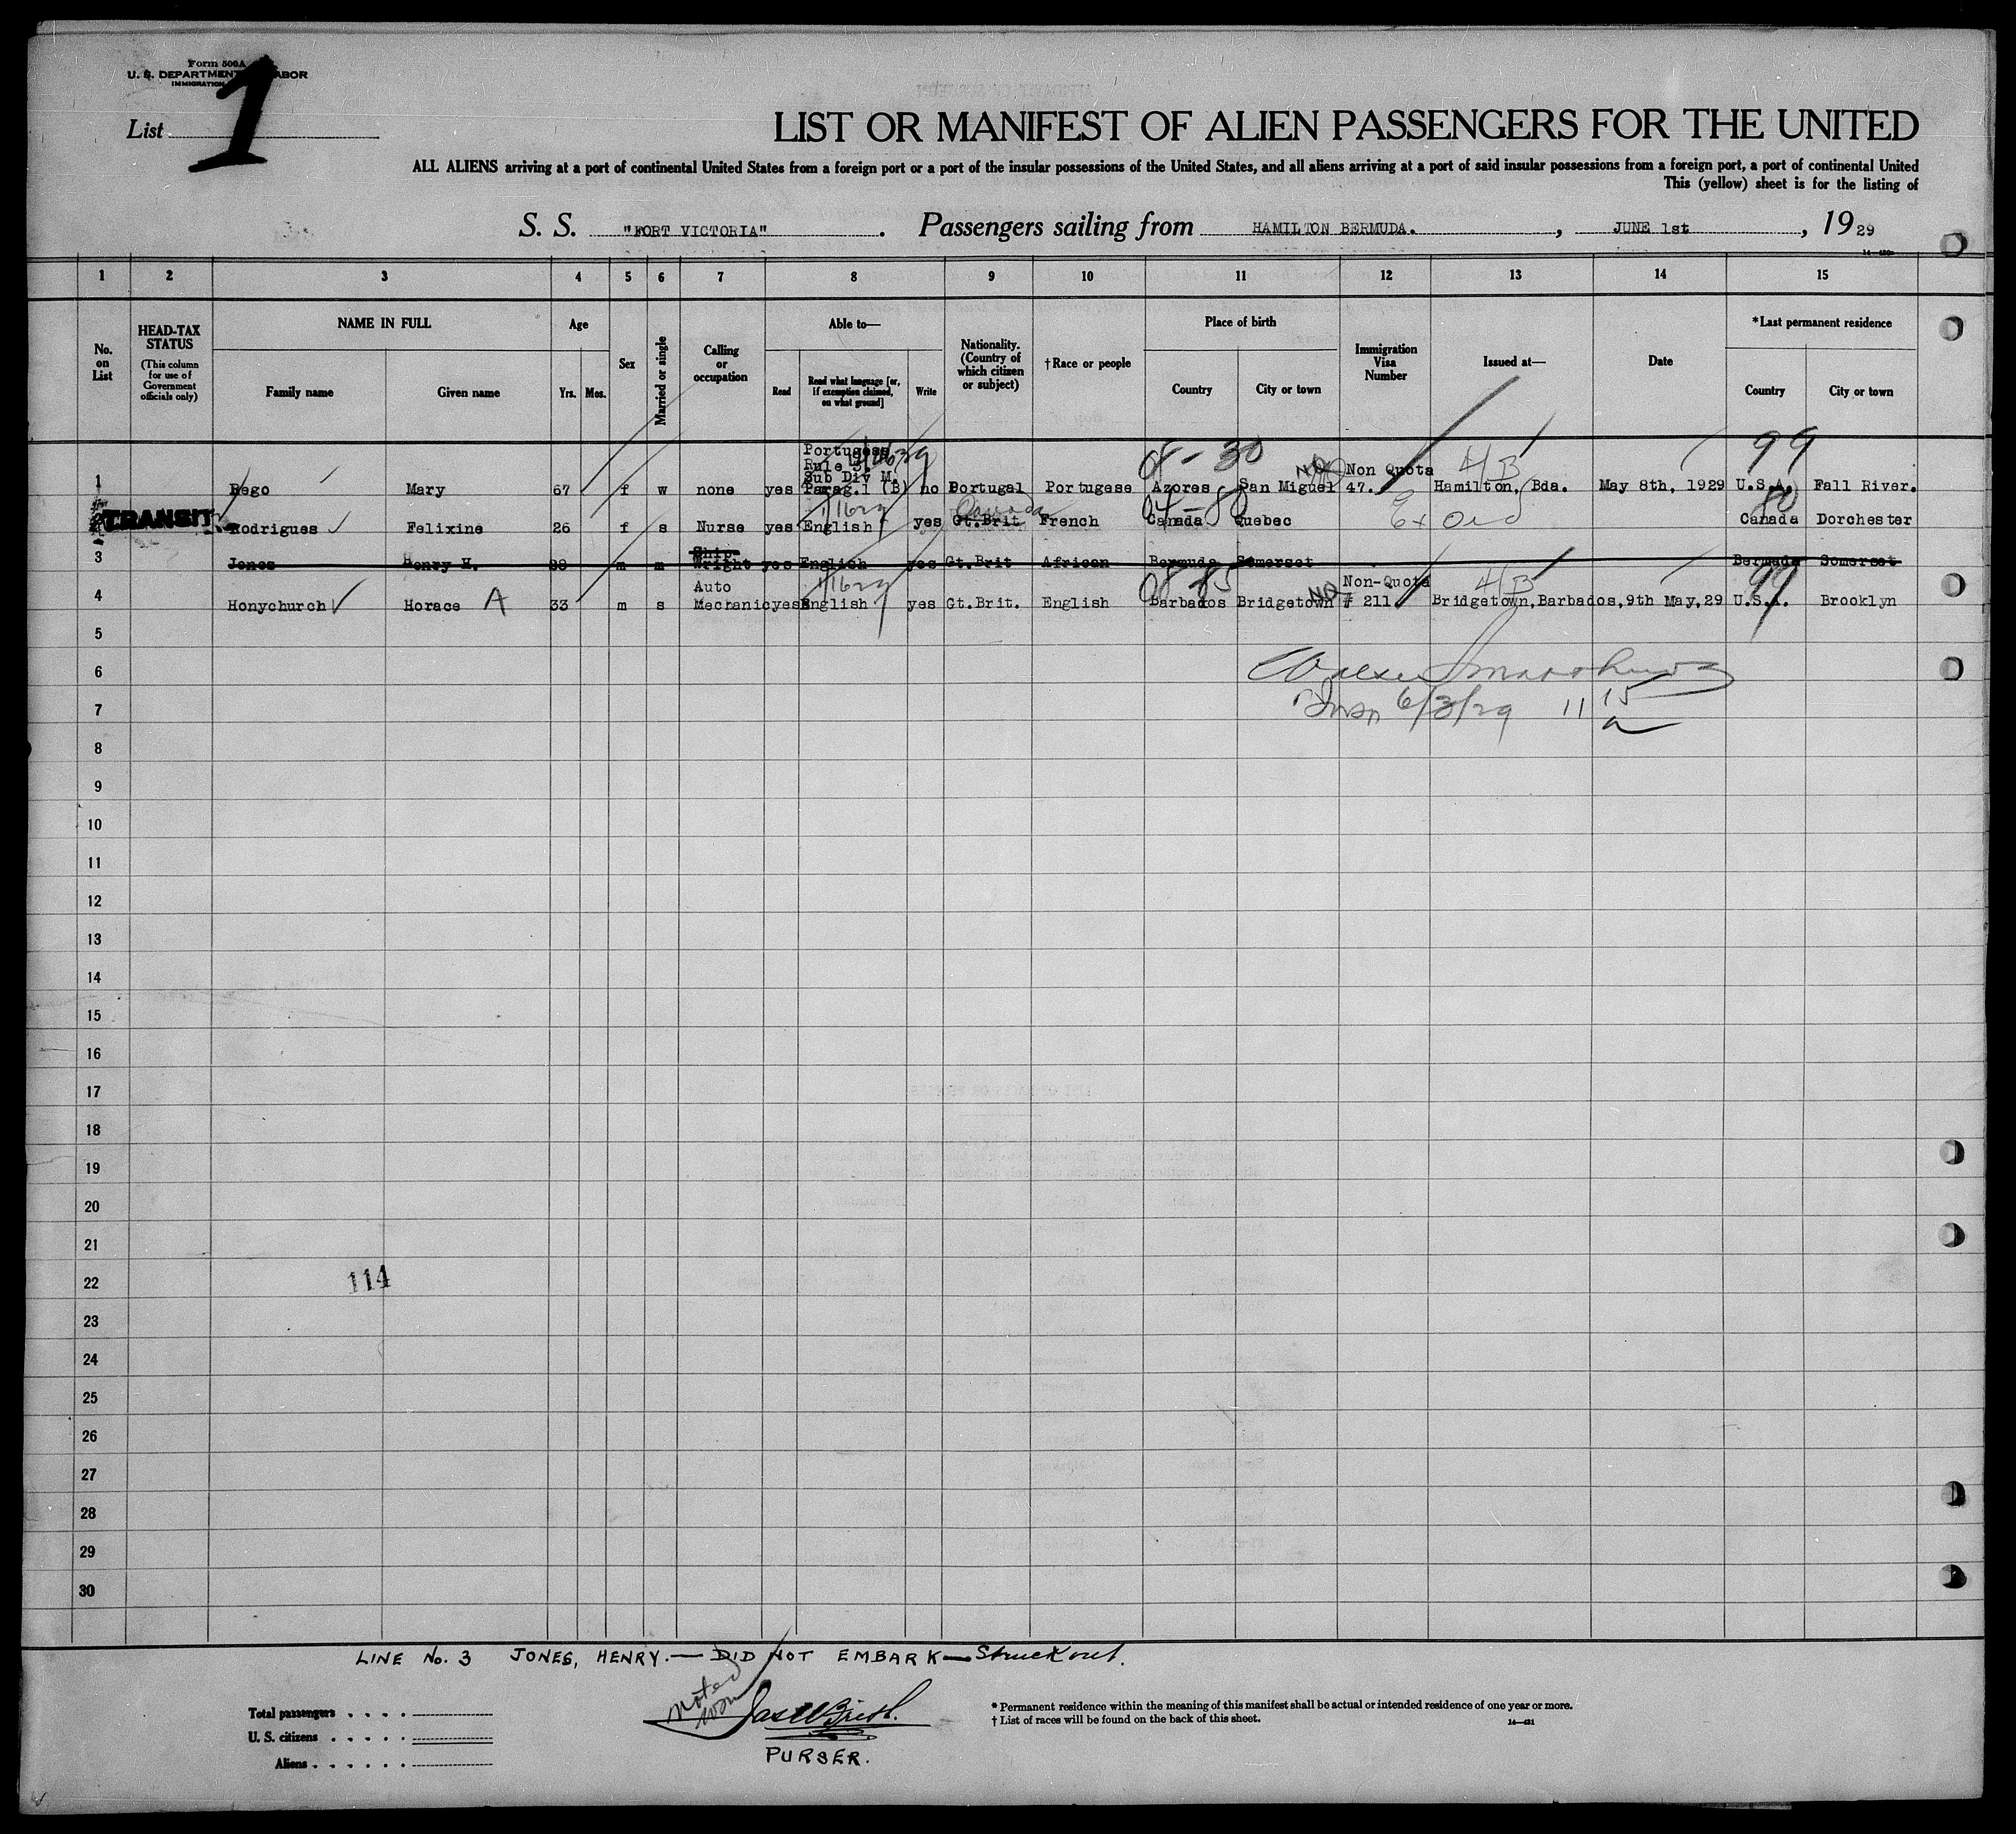 Form 500A
U. S. DEPARTMENT LABOR
IMMIGRATION
List 1
LIST OR MANIFEST OF ALIEN PASSENGERS FOR THE UNITED
ALL ALIENS arriving at a port of continental United States from a foreign port or a port of the insular possessions of the United States, and all aliens arriving at a port of said insular possessions from a foreign port, a port of continental United
This (yellow) sheet is for the listing of
S. S. "FORT VICTORIA". Passengers sailing from HAMILTON BERMUDA. , JUNE 1st , 1929
1 2 3 4 5 6 7 8 9 10 11 12 13 14 15
No. on List
HEAD-TAX STATUS
(This column for use of Government officials only)
NAME IN FULL
Family name Given name
Age
Yrs. Mos.
Sex
Married or single
Calling or occupation
Able to—
Read
Read what language [or, if exemption claimed, on what ground]
Write
Nationality. (Country of which citizen or subject)
†Race or people
Place of birth
Country City or town
Immigration Visa Number
Issued at—
Date
*Last permanent residence
Country City or town
Portugese
Rule 3.
Sub Div M. 08-30 NQ Non Quota 4B 99
1 Rego Mary 67 f w none yes Parag.1 (B) no Portugal Portugese Azores San Miguel 47. Hamilton, Bda. May 8th, 1929 U.S.A. Fall River.
Canada 04-80 Ex 80
TRANSIT Rodrigues Felixine 26 f s Nurse yes English yes Gt.Brit French Canada Quebec Canada Dorchester
Ship-
3 Jones Henry H. 28 m m Wright yes English yes Gt.Brit African Bermuda Somerset Bermuda Somerset
Auto 08-85 NQ Non-Quota 4B 99
4 Honychurch Horace A 33 m s Mechanic yes English yes Gt.Brit. English Barbados Bridgetown # 211 Bridgetown,Barbados,9th May,29 U.S.A. Brooklyn
5
6
7 6/3/29 11 15 a
8
9
10
11
12
13
14
15
16
17
18
19
20
21
22 114
23
24
25
26
27
28
29
30
LINE No. 3 JONES, HENRY.— DID NOT EMBARK — Struck out.
Noted
Total passengers . . . .
U. S. citizens . . . . .
Aliens . . . . . .
PURSER.
* Permanent residence within the meaning of this manifest shall be actual or intended residence of one year or more.
† List of races will be found on the back of this sheet.
14—431